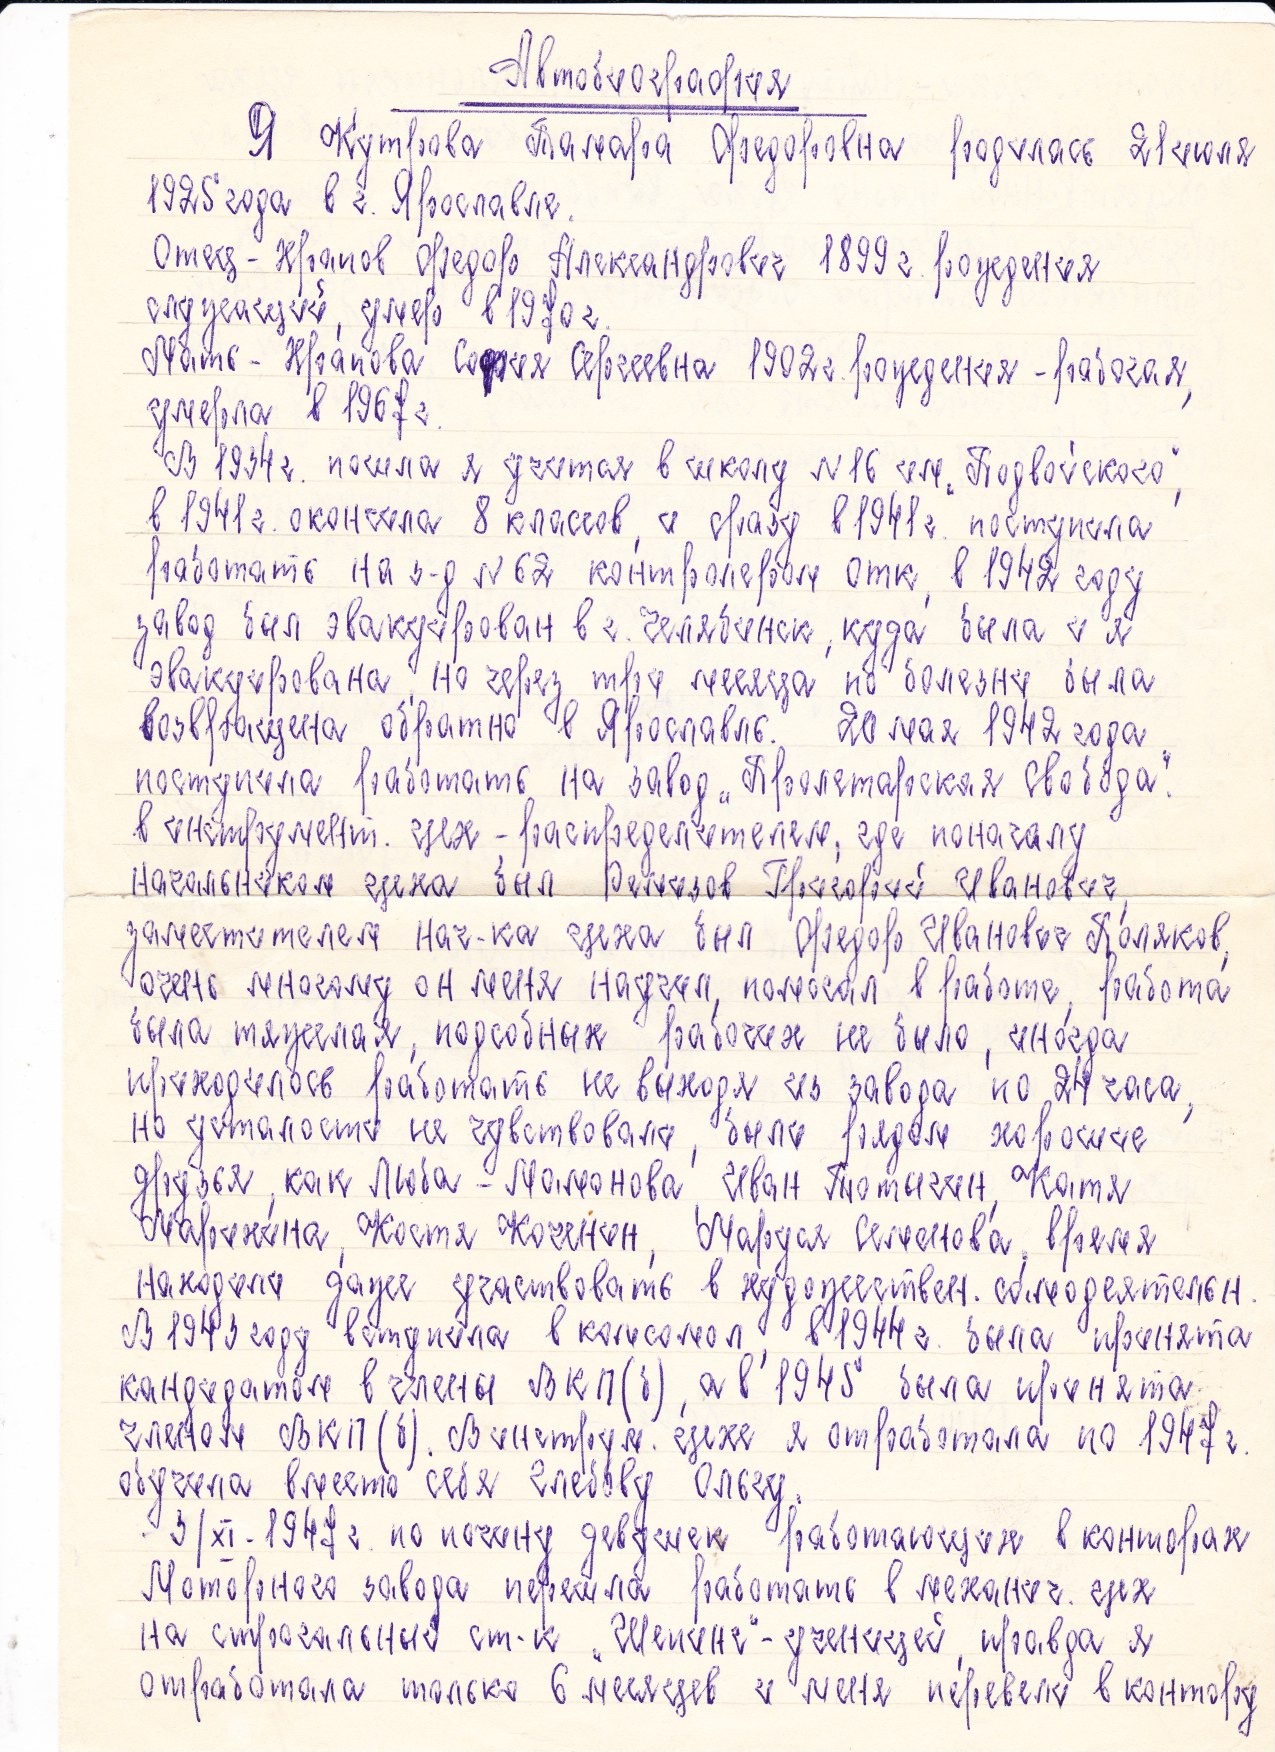 Автобиография
Я Кутрова Тамара Федоровна родилась 21 июля
1925 года в г. Ярославле.
Отец - Храпов Федор Александрович 1899 г. рождения
служащий, умер в 1970 г.
Мать - Храпова София Сергеевна 1902 г. рождения - рабочая,
умерла в 1967 г.
В 1934 г. пошла я учится в школу N 16 им. „Подвойского",
в 1941 г. окончила 8 классов, и сразу в 1941 г. поступила
работать на з-д N 62 контролером ОТК, в 1942 году
завод был эвакуирован в г. Челябинск, куда была и я
эвакуирована, но через три месяца по болезни была
возвращена обратно в Ярославль. 20 мая 1942 года
поступила работать на завод „Пролетарская Свобода".
в инструмент. цех - распределителем, где поначалу
начальником цеха был Ремизов Григорий Иванович,
заместителем нач-ка цеха был Федор Иванович Поляков,
очень многому он меня научил, помогал в работе, работа
была тяжелая, подсобных рабочих не было, иногда
приходилось работать не выходя из завода по 24 часа,
но усталости не чувствовали, были рядом хорошие
друзья, как Люба - Мамонова Иван Топыгин, Катя
Марихина, Костя Коченин, Маруся Семенова, время
находили даже участвовать в художествен. самодеятельн.
В 1943 году вступила в комсомол, в 1944 г. была принята
кандидатом в члены ВКП(б), а в 1945 была принята
членом ВКП(б). В инструм. цехе я отработала по 1947 г.
обучила вместо себя Глебову Ольгу.
3/XI - 1947 г. по почину девушек работающих в конторах
Моторного завода перешла работать в механич. цех
на строгальный ст-к „Шепинг" - ученицей, правда я
отработала только 6 месяцев и меня перевели в контору